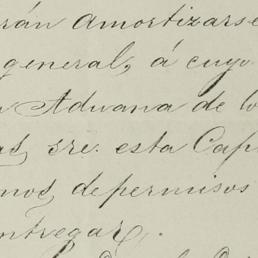 rán amortizarse
general, á cuyo
Aduana de lo
as, sre. esta Cap
nos, de permisos
ntregar.